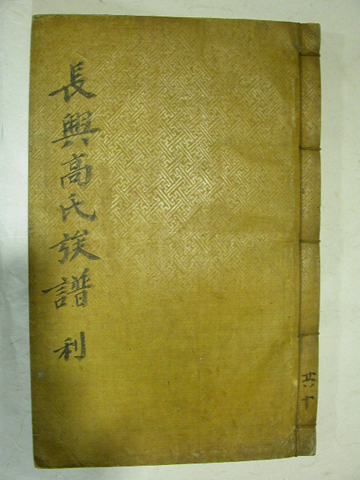 長興高氏族譜 利
共十